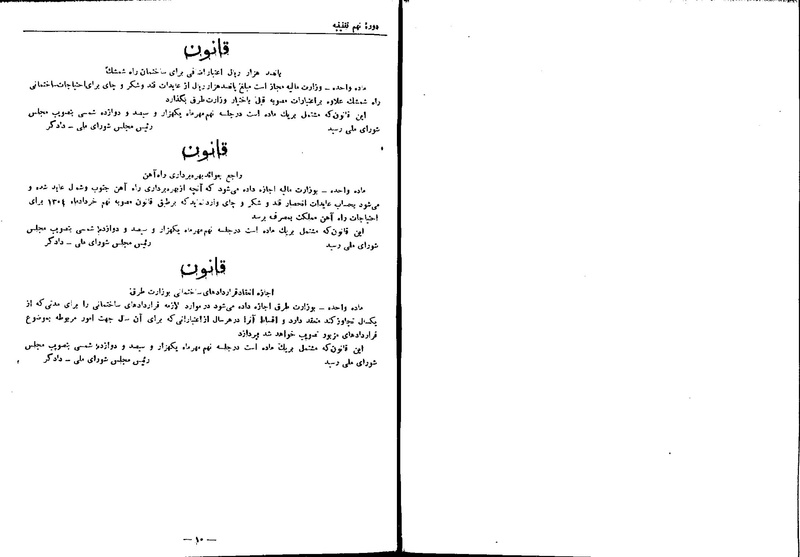 دورهٔ نهم تقنینیه
قانون
پانصد هزار ریال اعتبار اضافی برای ساختمان راه شمشک
ماده واحده ـ وزارت مالیه مجاز است مبلغ پانصدهزار ریال از عایدات قند و شکر و چای برای احتیاجات ساختمانی
راه شمشک علاوه بر اعتبارات مصوبه قبلی باختیار وزارت طرق بگذارد
این قانون که مشتمل بریک ماده است درجلسه نهم مهرماه یکهزار و سیصد و دوازده شمسی بتصویب مجلس
شورای ملی رسید رئیس مجلس شورای ملی ـ دادگر
قانون
راجع بعوائد بهره‌برداری راه‌آهن
ماده واحده ـ بوزارت مالیه اجازه داده می‌شود که آنچه از بهره‌برداری راه آهن جنوب و شمال عاید شده و
می‌شود بحساب عایدات انحصار قند و شکر و چای وارد نماید که برطبق قانون مصوبه نهم خردادماه ۱۳۰۴ برای
احتیاجات راه آهن مملکت بمصرف برسد
این قانون که مشتمل بریک ماده است درجلسه نهم مهرماه یکهزار و سیصد و دوازده شمسی بتصویب مجلس
شورای ملی رسید رئیس مجلس شورای ملی ـ دادگر
قانون
اجازه انعقاد قراردادهای ساختمانی بوزارت طرق
ماده واحده ـ بوزارت طرق اجازه داده می‌شود در موارد لازمه قراردادهای ساختمانی را برای مدتی که از
یکسال تجاوز کند منعقد دارد و اقساط آنرا در هر سال از اعتباراتی که برای آن سال جهت امور مربوطه بموضوع
قراردادهای مزبور تصویب خواهد شد بپردازد
این قانون که مشتمل بریک ماده است درجلسه نهم مهرماه یکهزار و سیصد و دوازده شمسی بتصویب مجلس
شورای ملی رسید رئیس مجلس شورای ملی ـ دادگر
ـ ۱۰ ـ